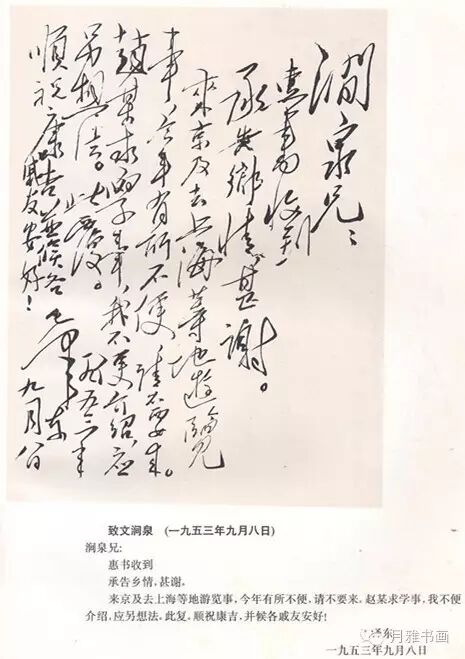 澗泉兄：
惠書收到
承告鄉情，甚謝。
來京及去上海等地遊覽
事，今年有所不便，請不要來。
趙某求學事，我不便介紹，應
另想法。此復。
順祝康吉 並候各
戚友安好！
毛澤東
一九五三年
九月八日
致文涧泉 (一九五三年九月八日)
涧泉兄：
惠书收到
承告乡情，甚谢。
来京及去上海等地游览事，今年有所不便，请不要来。赵某求学事，我不便
介绍，应另想法，此复，顺祝康吉，并候各戚友安好！
泽东
一九五三年九月八日
月雅书画